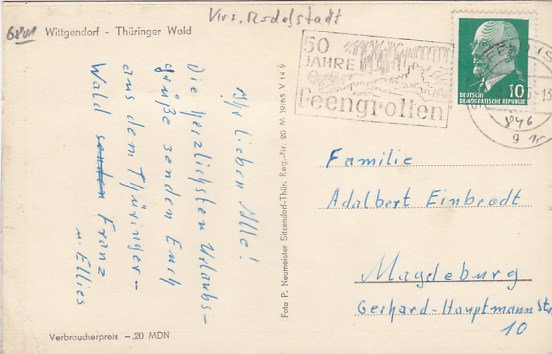 Wittgendorf - Thüringer Wald
50
JAHRE
Feengrotten
10
DEUTSCHE
DEMOKRATISCHE REPUBLIK
Ihr lieben Alle!
Die herzlichsten Urlaubs-
grüße senden Euch
aus dem Thüringer-
Wald senden Franz
u. Ellies
Foto P. Neumeister Sitzendorf-Thür. Reg.-Nr. 20 M 19/65 V 14 9
Familie
Adalbert Einbrodt
Magdeburg
Gerhard-Hauptmann Str.
10
Verbraucherpreis - ,20 MDN